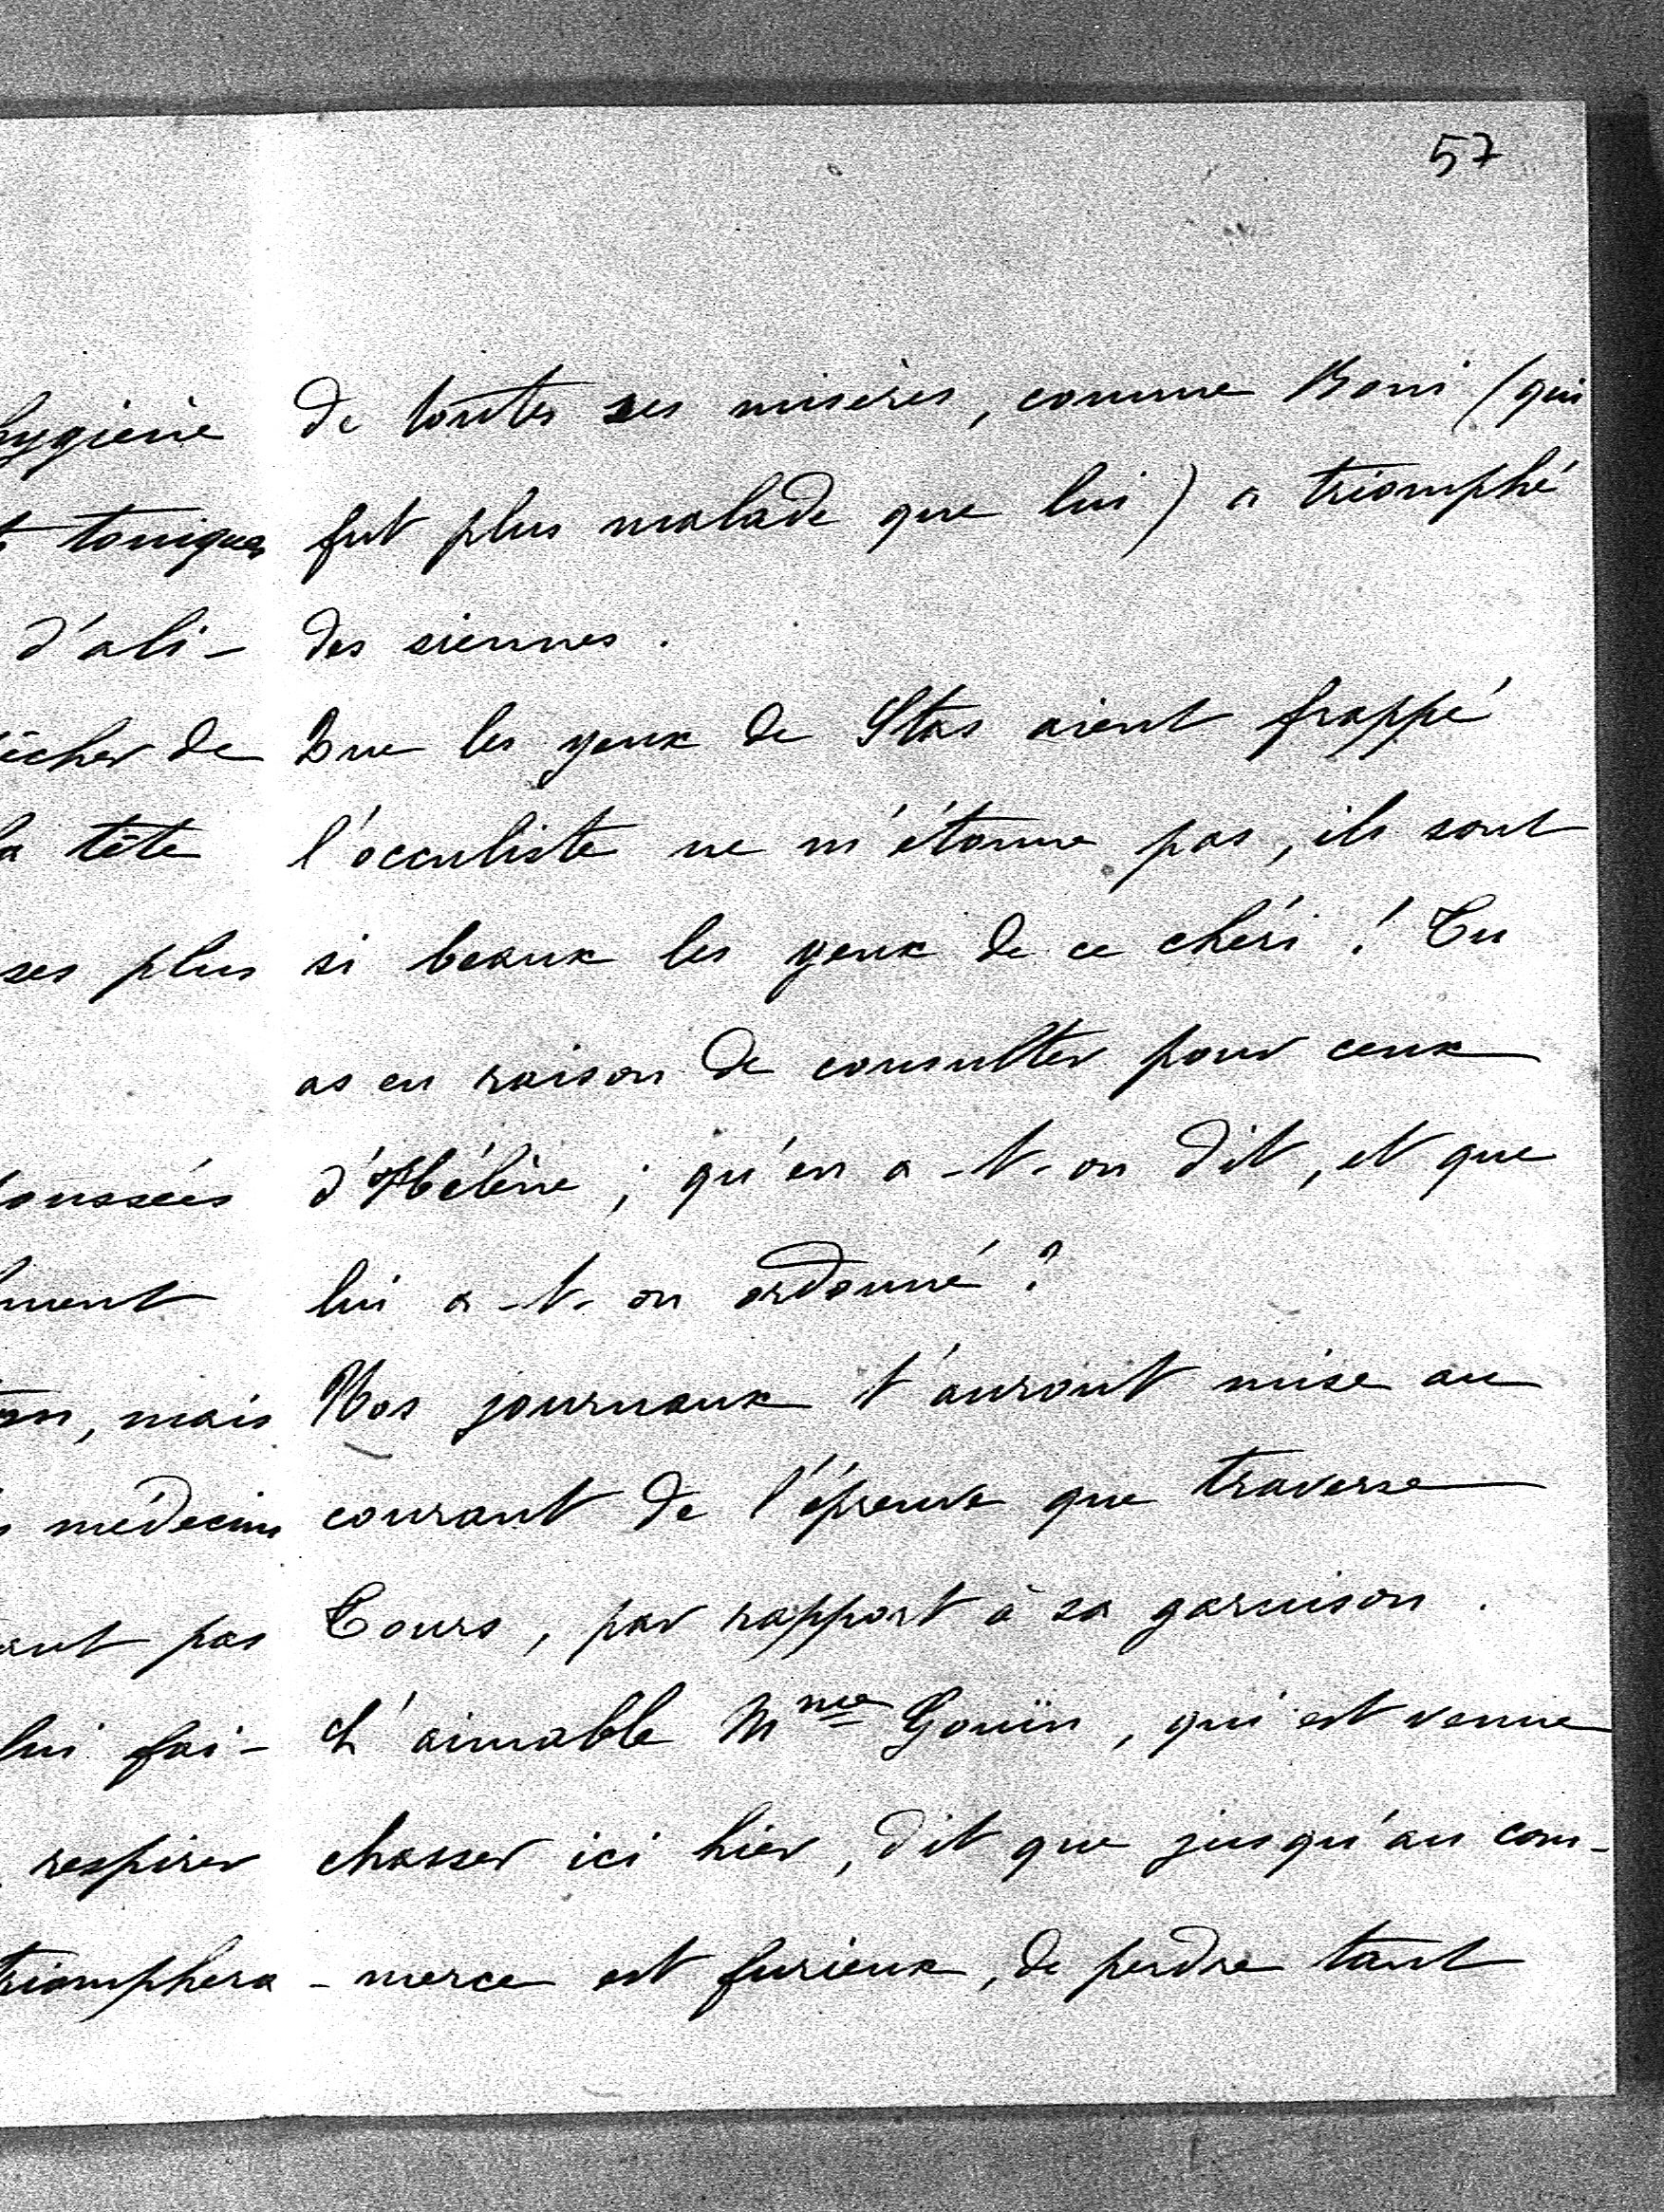 57
hygiène
toniques
d'ali-
de
la tête
ses plus
mais
médecins
pas
lui fai-
respirer
triomphera
de toutes ses misères, comme Boni (qui
fut plus malade que lui) a triomphé
des siennes.
Que les yeux de Stas aient frappé
l'occuliste ne m'étonne pas, ils sont
si beaux les yeux de ce chéri ! Tu
as eu raison de consulter pour ceux
d'Hélène ; qu'en a-t-on dit, et que
lui a-t-on ordonné ?
Nos journaux t'auront mise au
courant de l'épreuve que traverse
Tours, par rapport à sa garnison.
L'aimable Mme Gouïn, qui est venue
chasser ici hier, dit que jusqu'au com-
-merce est furieux, de perdre tant